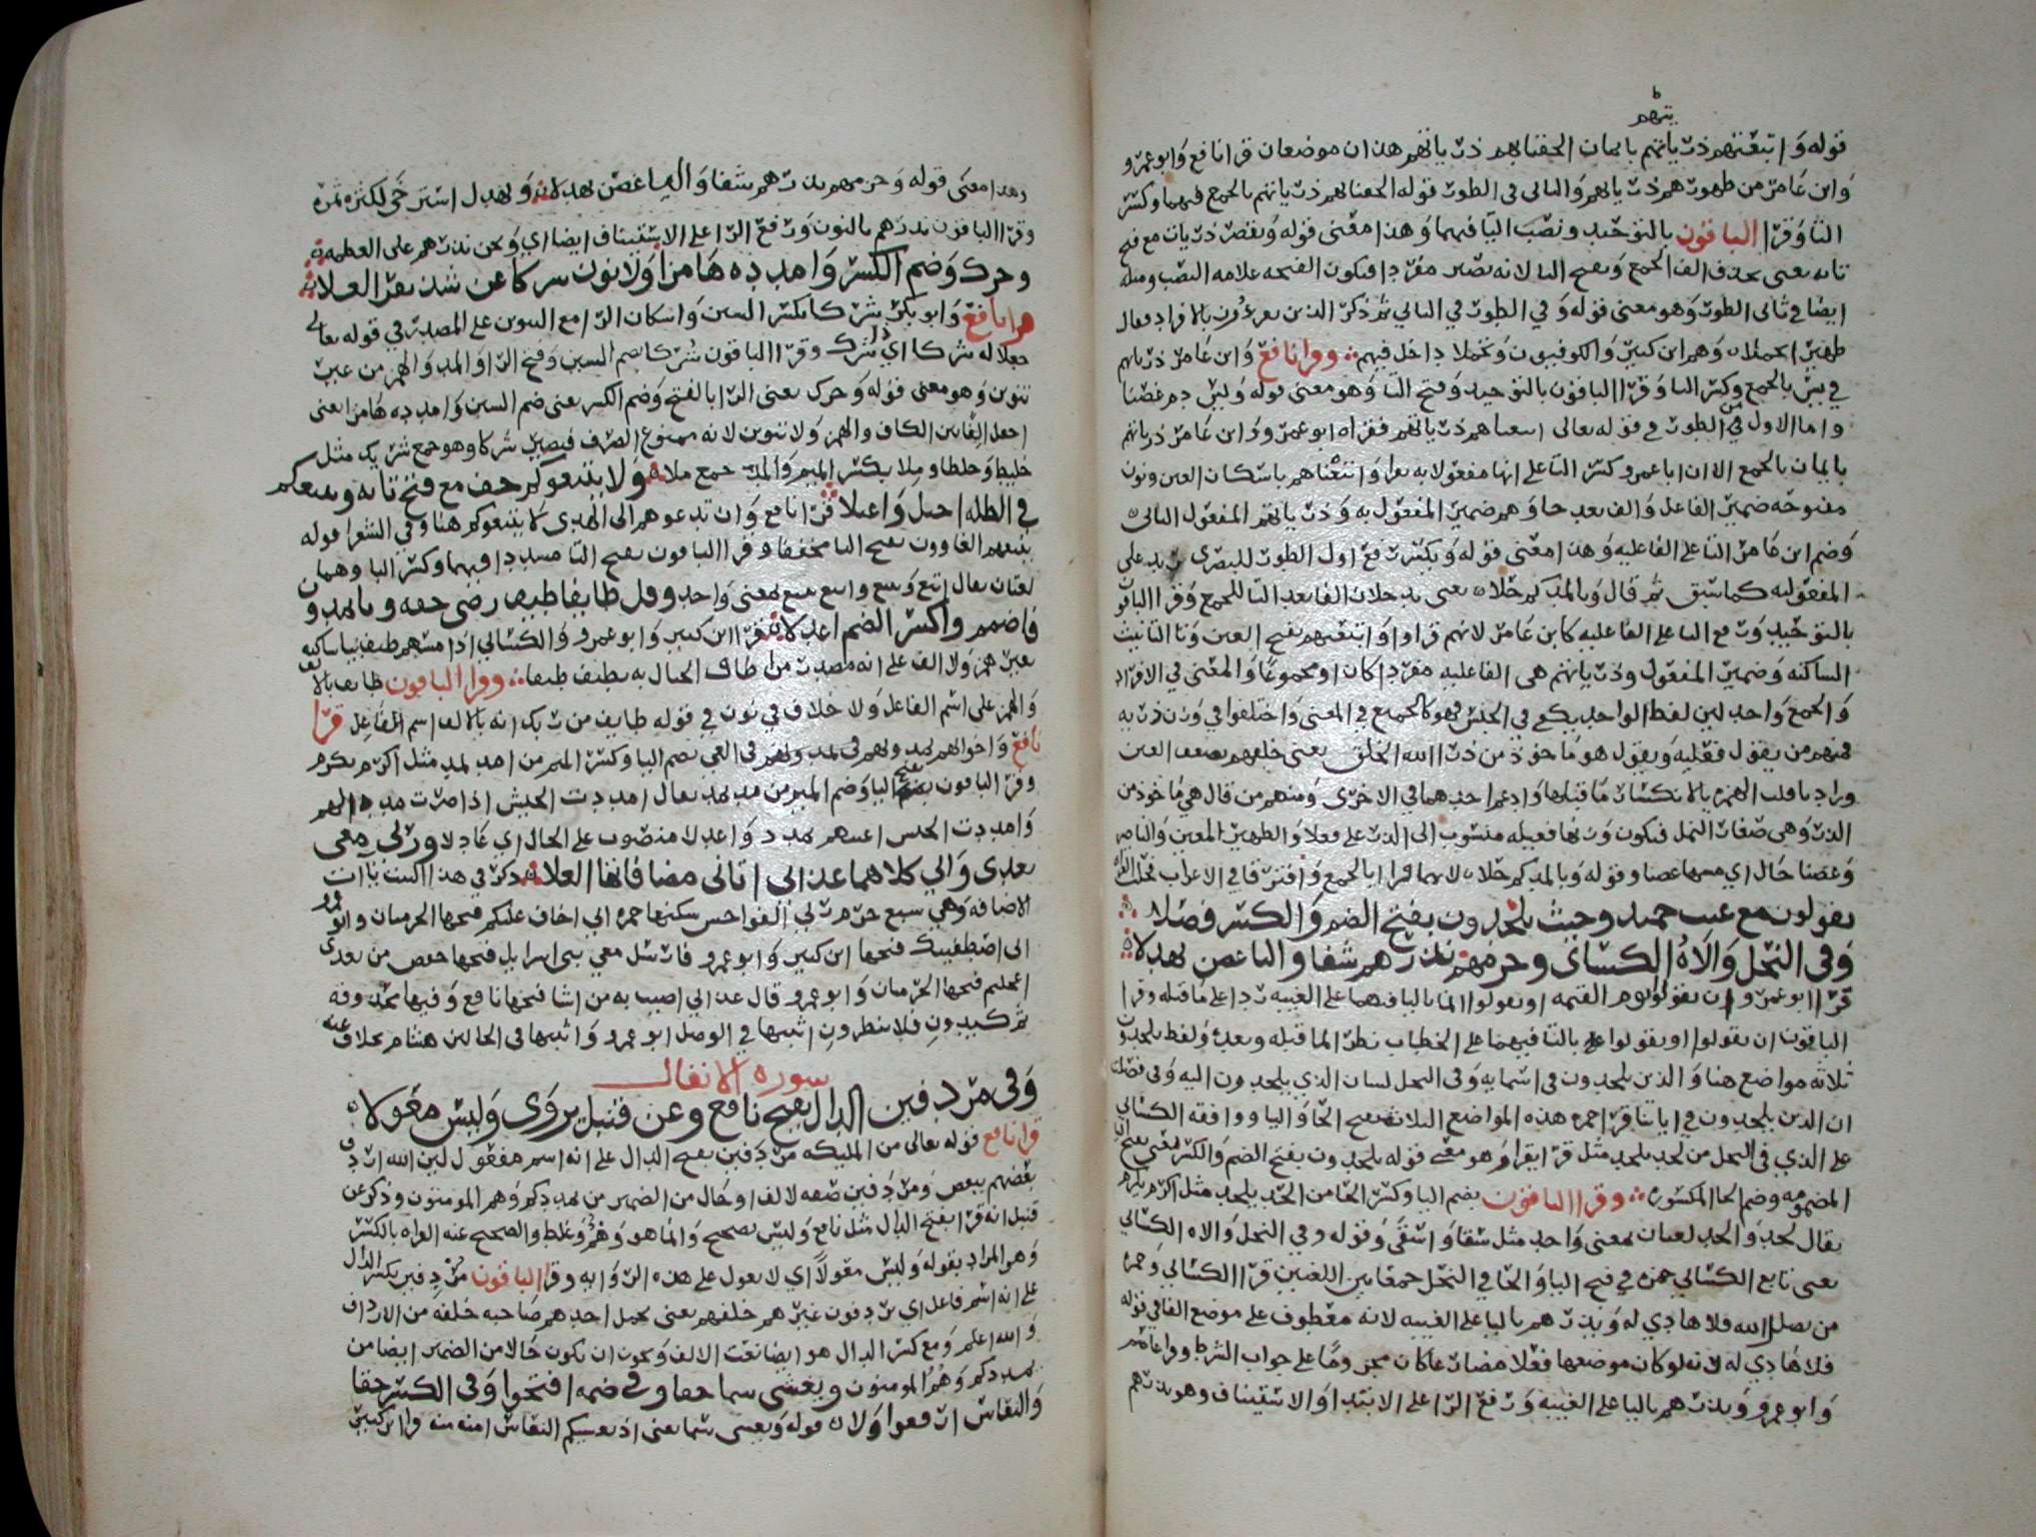 يتهم
قوله واتبعتهم ذرياتهم بايمان الحقنا بهم ذرياتهم هذان موضعان قرا نافع وابو عمرو
وابن عامر من ظهورهم ذرياتهم والثاني في الطور قوله الحقنا بهم ذرياتهم بالجمع فيهما وكسر
التا وقرا الباقون بالتوحيد ونصب التا فيهما وهذا معنى قوله ويقصر ذريات مع فتح
تائه يعني بحذف الف الجمع وبفتح التا لانه يصير مفردا فتكون الفتحه علامه النصب ومثله
ايضا في ثاني الطور وهو معنى قوله وفي الطور في الثاني ثم ذكر الذين يقرؤن بالافراد فقال
ظهير تحملا وهم ابن كثير والكوفيون وتحملا داخل فيهم وقرا نافع وابن عامر ذرياتهم
في يس بالجمع وكسر التا وقرا الباقون بالتوحيد وفتح التا وهو معنى قوله ويس دم غصنا
واما الاول من الطور في قوله تعالى اتبعناهم ذرياتهم فقراه ابو عمرو وابن عامر ذرياتهم
بايمان بالجمع الا ان ابا عمرو كسر التا على انها مفعولا به يقرا واتبعناهم باسكان العين ونون
مفتوحه ضمير الفاعل والف بعدها وهم ضمير المفعول به وذرياتهم المفعول الثاني
وضم ابن عامر التا على الفاعليه وهذا معنى قوله ويكسر رفع اول الطور للبصري يريد على
المفعوليه كما سبق ثم قال وبالمد كم حلا يعني بمد حلا الفا بعد التا للجمع وقرا الباقو
بالتوحيد ورفع التا على الفاعليه كابن عامر لانهم قراوا واتبعتهم بفتح العين وتا التانيث
الساكنه وضمير المفعول وذرياتهم هي الفاعليه مفردا كان او مجموعا والمعنى في الافراد
والجمع واحد لان لفظ الواحد يكفي في الجنس فهو كالجمع في المعنى واختلفوا في وزن ذريه
فمنهم من يقول فعليه ويقول هو ماخوذ من ذرا الله الخلق يعني خلقهم بضعف العين
وراد يا قلب الهمزه يا لانكسار ما قبلها وادغم احدهما في الاخرى ومنهم من قال هي ماخوذ من
الذر وهي صغار النمل فيكون وزنها فعيله منسوب الى الذر على فعلا والظهير المعين والناصر
وغصنا حال اي مشبها غصنا وقوله وبالمد كم حلا لانهما قرا بالجمع وافترقا في الاعراب
يقولوا مع غيب حميد وحيث يلحدون بفتح الضم والكسر فصلا
وفي النحل والاه الكسائي وجزمهم يذرهم شفا واليا غصن تهدلا
قرا ابو عمرو ان يقولوا يوم القيمه او يقولوا انما باليا فيهما على الغيبه ردا على ما قبله وقرا
الباقون ان تقولوا او تقولوا بالتا فيهما على الخطاب نظرا لما قبله وبعده ولفظ يلحدون
ثلاثه مواضع هنا والذين يلحدون في اسمايه وفي النحل لسان الذي يلحدون اليه وفي فصلت
ان الذين يلحدون في اياتنا قرا حمزه هذه المواضع الثلاثه بفتح الحا واليا ووافقه الكسائي
على الذي في النحل من لحد يلحد مثل قرا يقرا وهو معنى قوله يلحدون بفتح الضم والكسر يعني بفتح اليا
المضمومه وضم الحا المكسوره وقرا الباقون بضم اليا وكسر الحا من الحد يلحد مثل اكرم يكرم
يقال لحد والحد لغتان بمعنى واحد مثل سقا واسقى وقوله وفي النحل والاه الكسائي
يعني تابع الكسائي حمزه في فتح اليا والحا في النحل جمعا بين اللغتين قرا الكسائي وحمزه
من يضلل الله فلا هادي له ويذرهم باليا على الغيبه لانه معطوف على موضع الفا في قوله
فلا هادي له لانه لو كان موضعها فعلا مضارعا كان مجزوما على جواب الشرط وقرا عاصم
وابو عمرو ويذرهم باليا على الغيبه ورفع الرا على الابتدا والاستيناف وهو يذرهم
وهذا معنى قوله وجزمهم يذرهم شفا واليا غصن تهدلا وتهدل استرخى لكثره ثمره
وقرا الباقون نذرهم بالنون ورفع الرا على الاستيناف ايضا اي ونحن نذرهم على العظمه
وحرك وضم الكسر وامدده هامزا ولا نون شركا عن شذا نفر العلا
قرا نافع وابو بكر شركا بكسر الشين واسكان الرا مع التنوين على المصدر في قوله تعالى
جعلا له شركا اي ذا شرك وقرا الباقون شركا بضم الشين وفتح الرا والمد والهمز من غير
تنوين وهو معنى قوله وحرك يعني الرا بالفتح وضم الكسر يعني ضم الشين وامدده هامزا يعني
اجعل الفا بين الكاف والهمز ولا تنوين لانه ممنوع الصرف فيصير شركا وهو جمع شريك مثل
خليط وخلطا وملا بكسر الميم والمد جمع ملاه ولا يتبعوكم خف مع فتح بائه ويتبعهم
في الظله احتل واعتلا قرا نافع وان تدعوهم الى الهدى لا يتبعوكم هنا وفي الشعرا قوله
يتبعهم الغاوون بفتح البا مخففا وقرا الباقون بفتح التا مشددا فيهما وكسر البا وهما
لغتان يقال اتبع وتبع واتبع يتبع بمعنى واحد وقل طائف طيف رضى حقه ويا يمدون
فاضمم واكسر الضم اعدلا قرا ابن كثير وابو عمرو والكسائي اذا مسهم طيف بيا ساكنه
بغير همز ولا الف على انه مصدر من طاف الخيال به يطيف طيفا وقرا الباقون طايف بالالف
والهمز على اسم الفاعل ولا خلاف في نون في قوله طايف من ربك انه بالالف اسم الفاعل قرا
نافع واخوانهم يمدونهم في الغي بضم اليا وكسر الميم من امد يمد مثل اكرم يكرم
وقرا الباقون بفتح اليا وضم الميم من مد يمد يقال امددت الجيش اذا صرت مددا لهم
وامددت الجيش اعنتهم بمدد واعدلا منصوب على الحال اي عادلا وربي معي
بعدي واني كلاهما عذابي اياتي مضافاتها العلا ذكر في هذا البيت يات
الاضافه وهي سبع حرم ربي الفواحش سكنها حمزه اني اخاف عليكم فتحها الحرميان وابو عمرو
اني اصطفيتك فتحها ابن كثير وابو عمرو فارسل معي بني اسرايل فتحها حفص من بعدي
اعجلتم فتحها الحرميان وابو عمرو قال عذابي اصيب به من اشا فتحها نافع وفيها محذوفه
ثم كيدون فلا تنظرون اثبتها في الوصل ابو عمرو واثبتها في الحالين هشام بخلاف عنه
سوره الانفال
وفي مردفين الدال يفتح نافع وعن قنبل يروى وليس معولا
قرا نافع قوله تعالى من المليكه مردفين بفتح الدال على انه اسم مفعول لان الله اردف
بعضهم ببعض ومردفين صفه لالف او حال من الضمير من ممدكم وهم المومنون وذكر عن
قنبل انه قرا بفتح الدال مثل نافع وليس بصحيح وانما هو وهم وغلط والصحيح عنه القراه بالكسر
وهو المراد بقوله وليس معولا اي لا يعول على هذه الروايه وقرا الباقون مردفين بكسر الدال
على انه اسم فاعل اي يردفون غيرهم خلفهم يعني يحمل احدهم صاحبه خلفه من الارداف
والله اعلم ومع كسر الدال هو ايضا نعت لالف ويجوز ان يكون حالا من الضمير ايضا من
ممدكم وهم المومنون ويغشي سما خفا وفي ضمه افتحوا وفي الكسر حقا
والنعاس ارفعوا ولا قوله ويغشي سما يعني اذ يغشيكم النعاس امنه منه قرا ابن كثير